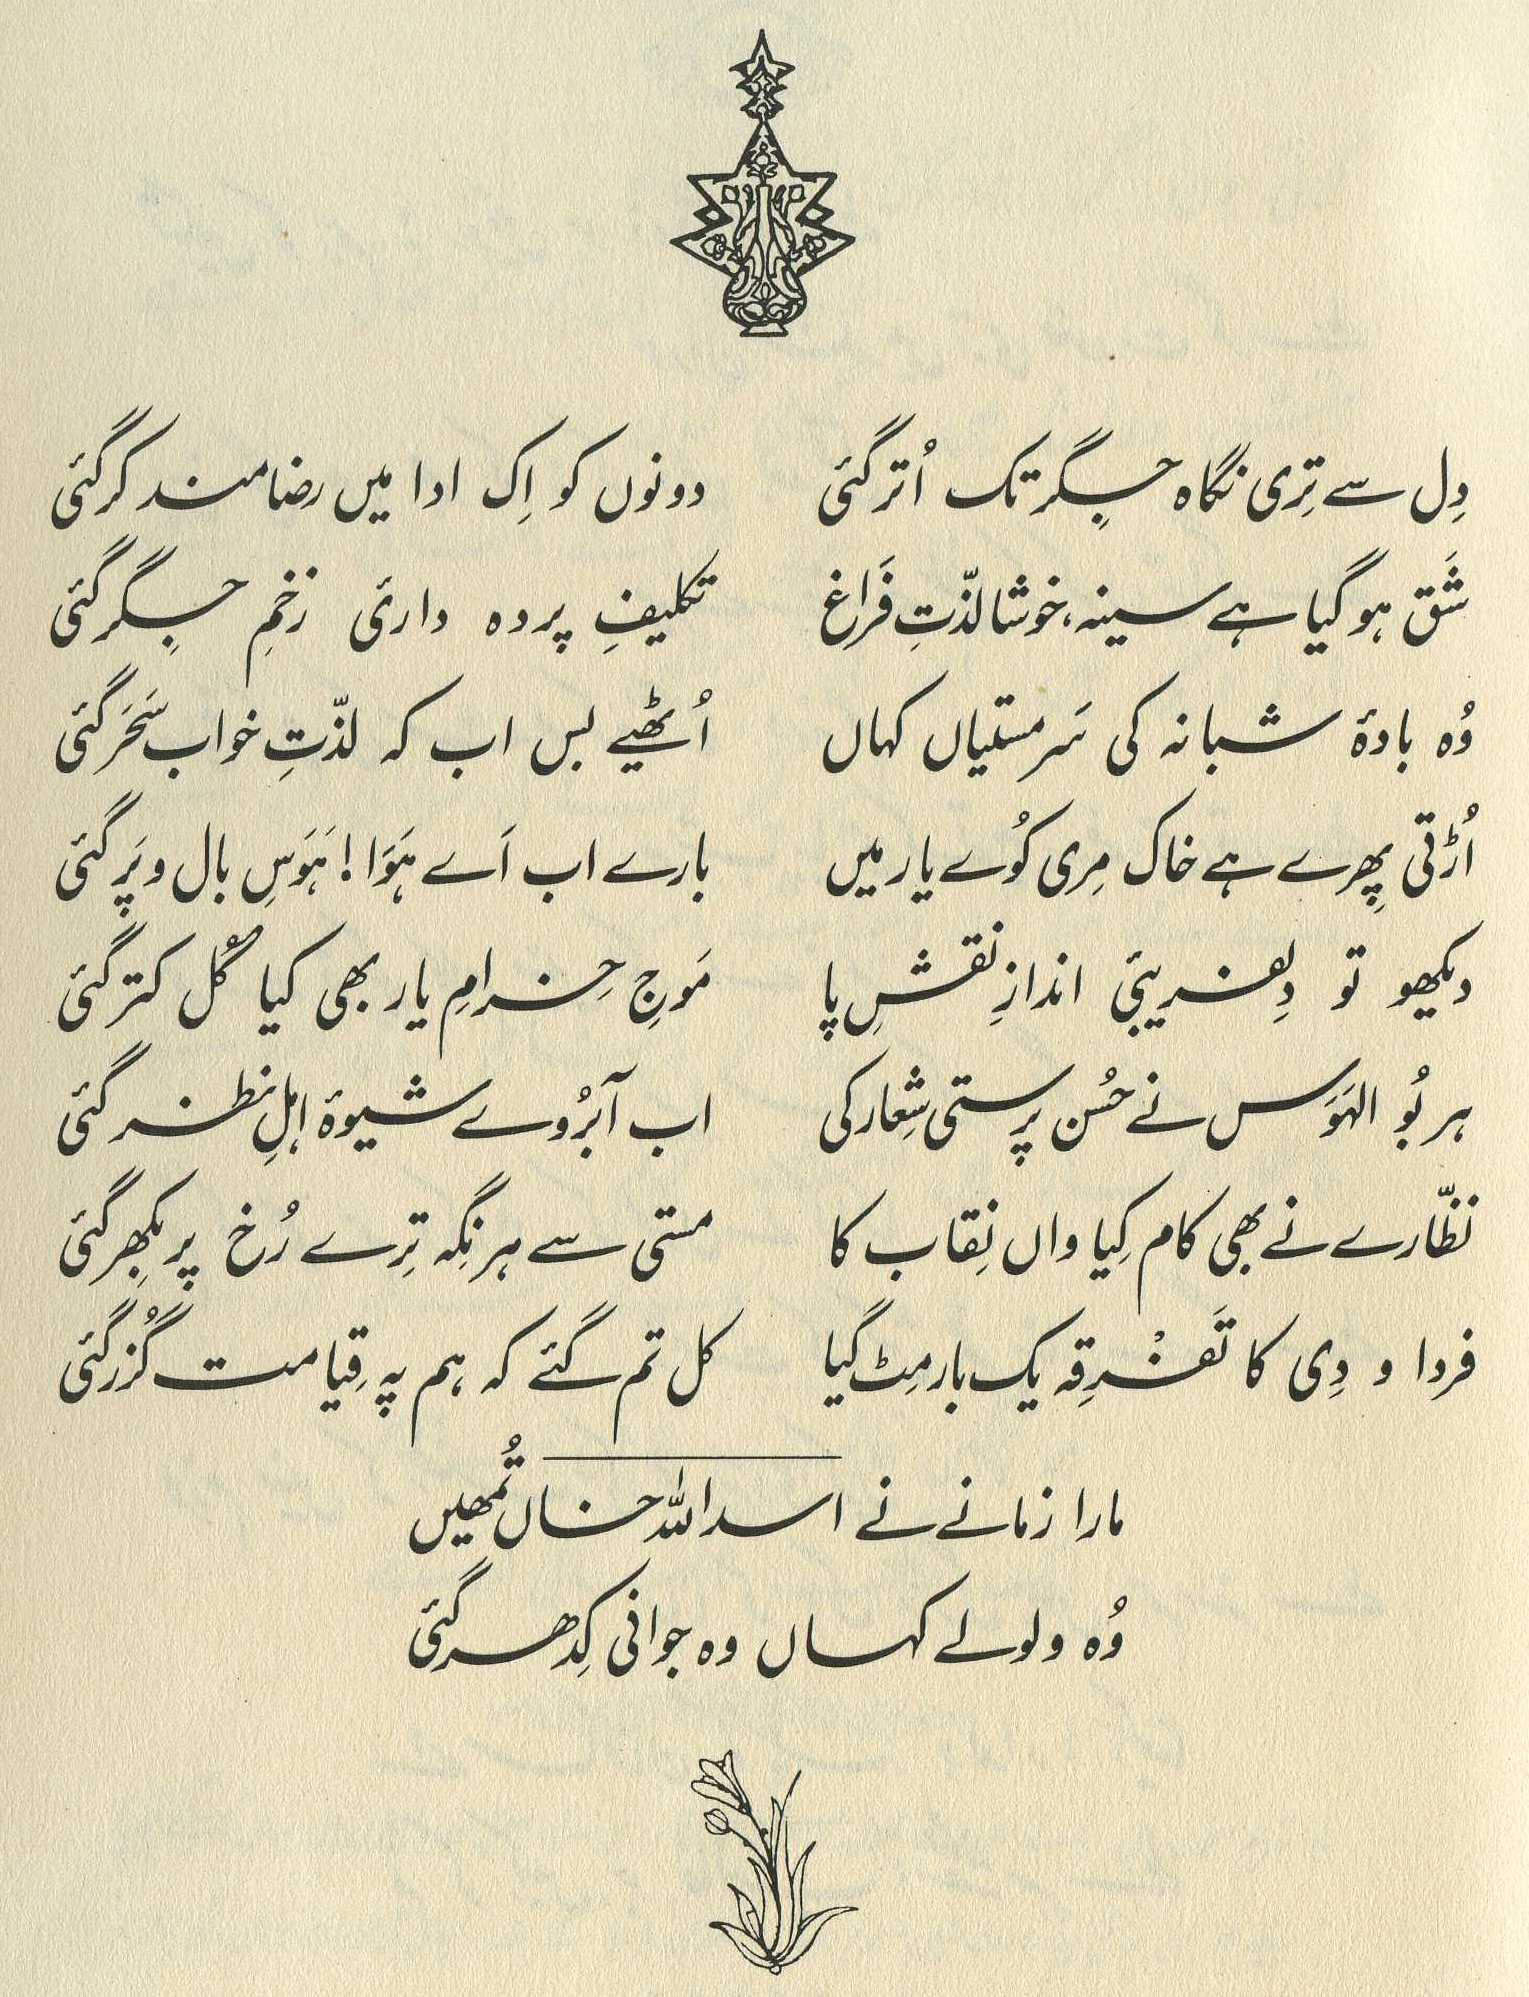 دِل سے تِری نگاہ جِگر تک اُتر گئی دونوں کو اِک ادا میں رضامند کر گئی
شَق ہو گیا ہے سینہ، خوشا لذّتِ فَراغ تکلیفِ پردہ داریٔ زخمِ جِگر گئی
وُہ بادۂ شبانہ کی سَرمستیاں کہاں اُٹھیے بس اب کہ لذّتِ خوابِ سَحَر گئی
اُڑتی پِھرے ہے خاک مِری کُوے یار میں بارے اب اَے ہَوَا! ہَوَسِ بال و پَر گئی
دیکھو تو دِلفریبیٔ اندازِ نقشِ پا مَوجِ خِرامِ یار بھی کیا گُل کتر گئی
ہر بُو الہَوَس نے حُسن پرستی شِعار کی اب آبرُوے شیوۂ اہلِ نظر گئی
نظّارے نے بھی کام کِیا واں نِقاب کا مستی سے ہر نِگہ تِرے رُخ پر بِکھر گئی
فردا و دِی کا تَفْرِقہ یک بار مِٹ گیا کل تم گئے کہ ہم پہ قِیامت گُزر گئی
مارا زمانے نے اسداللہ خاں تُمھیں
وُہ ولولے کہاں وہ جوانی کِدھر گئی